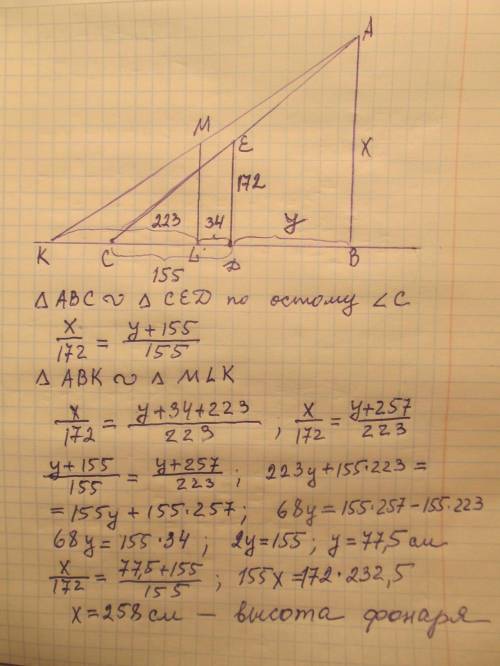 A
M
E
X
172
223
34
y
K
C
L
D
B
155
Δ ABC ∾ Δ CED по острому ∠C
x/172 = (y+155)/155
Δ ABK ∾ Δ MLK
x/172 = (y+34+223)/223 ; x/172 = (y+257)/223
(y+155)/155 = (y+257)/223 ; 223y+155·223 =
= 155y+155·257; 68y=155·257-155·223
68y=155·34 ; 2y=155 ; y=77,5 см
x/172 = (77,5+155)/155 ; 155x=172·232,5
x=258 см – высота фонаря